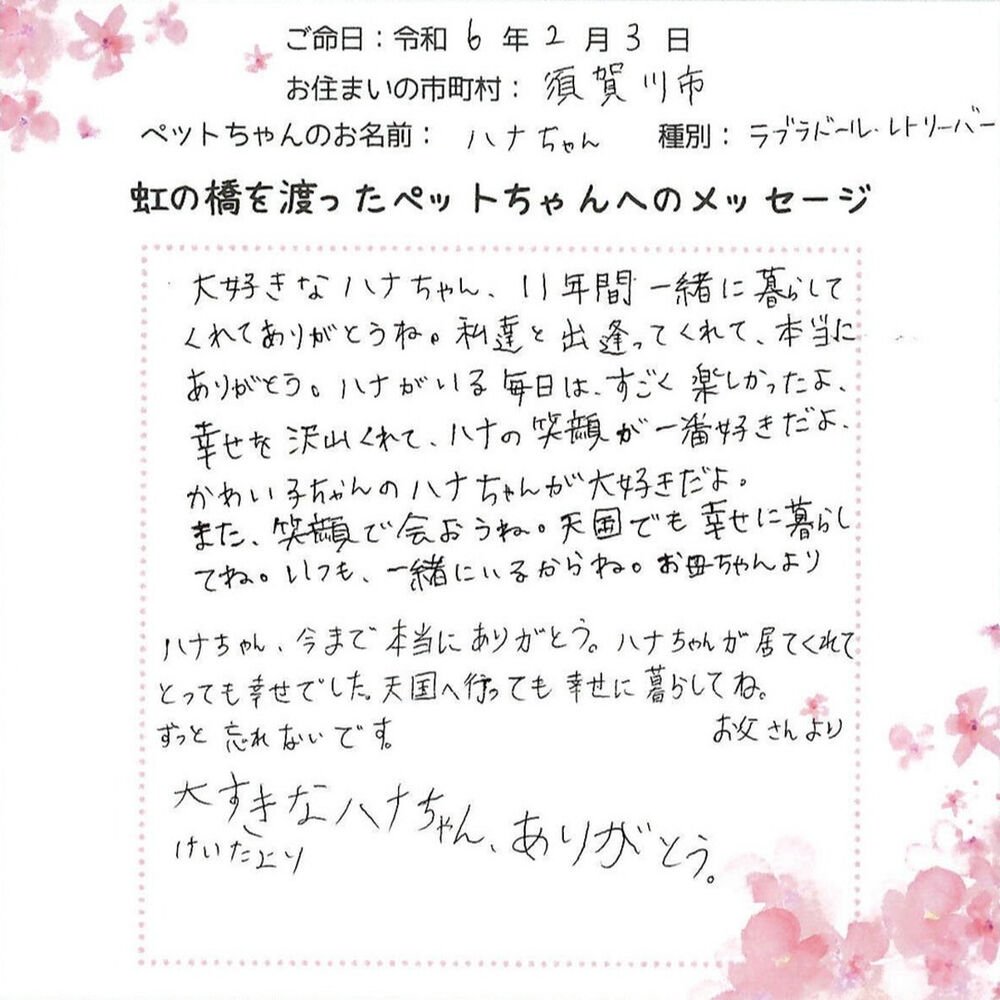 ご命日：令和 6 年 2 月 3 日
お住まいの市町村： 須賀川市
ペットちゃんのお名前： ハナちゃん 種別： ラブラドール・レトリーバー
虹の橋を渡ったペットちゃんへのメッセージ
大好きなハナちゃん、11年間一緒に暮らして
くれてありがとうね。私達と出逢ってくれて、本当に
ありがとう。ハナがいる毎日は、すごく楽しかったよ、
幸せを沢山くれて、ハナの笑顔が一番好きだよ、
かわい子ちゃんのハナちゃんが大好きだよ。
また、笑顔で会おうね。天国でも幸せに暮らし
てね。いつも、一緒にいるからね。お母ちゃんより
ハナちゃん、今まで本当にありがとう。ハナちゃんが居てくれて
とっても幸せでした。天国へ行っても幸せに暮らしてね。
ずっと忘れないです。 お父さんより
大すきなハナちゃん、ありがとう。
けいたより